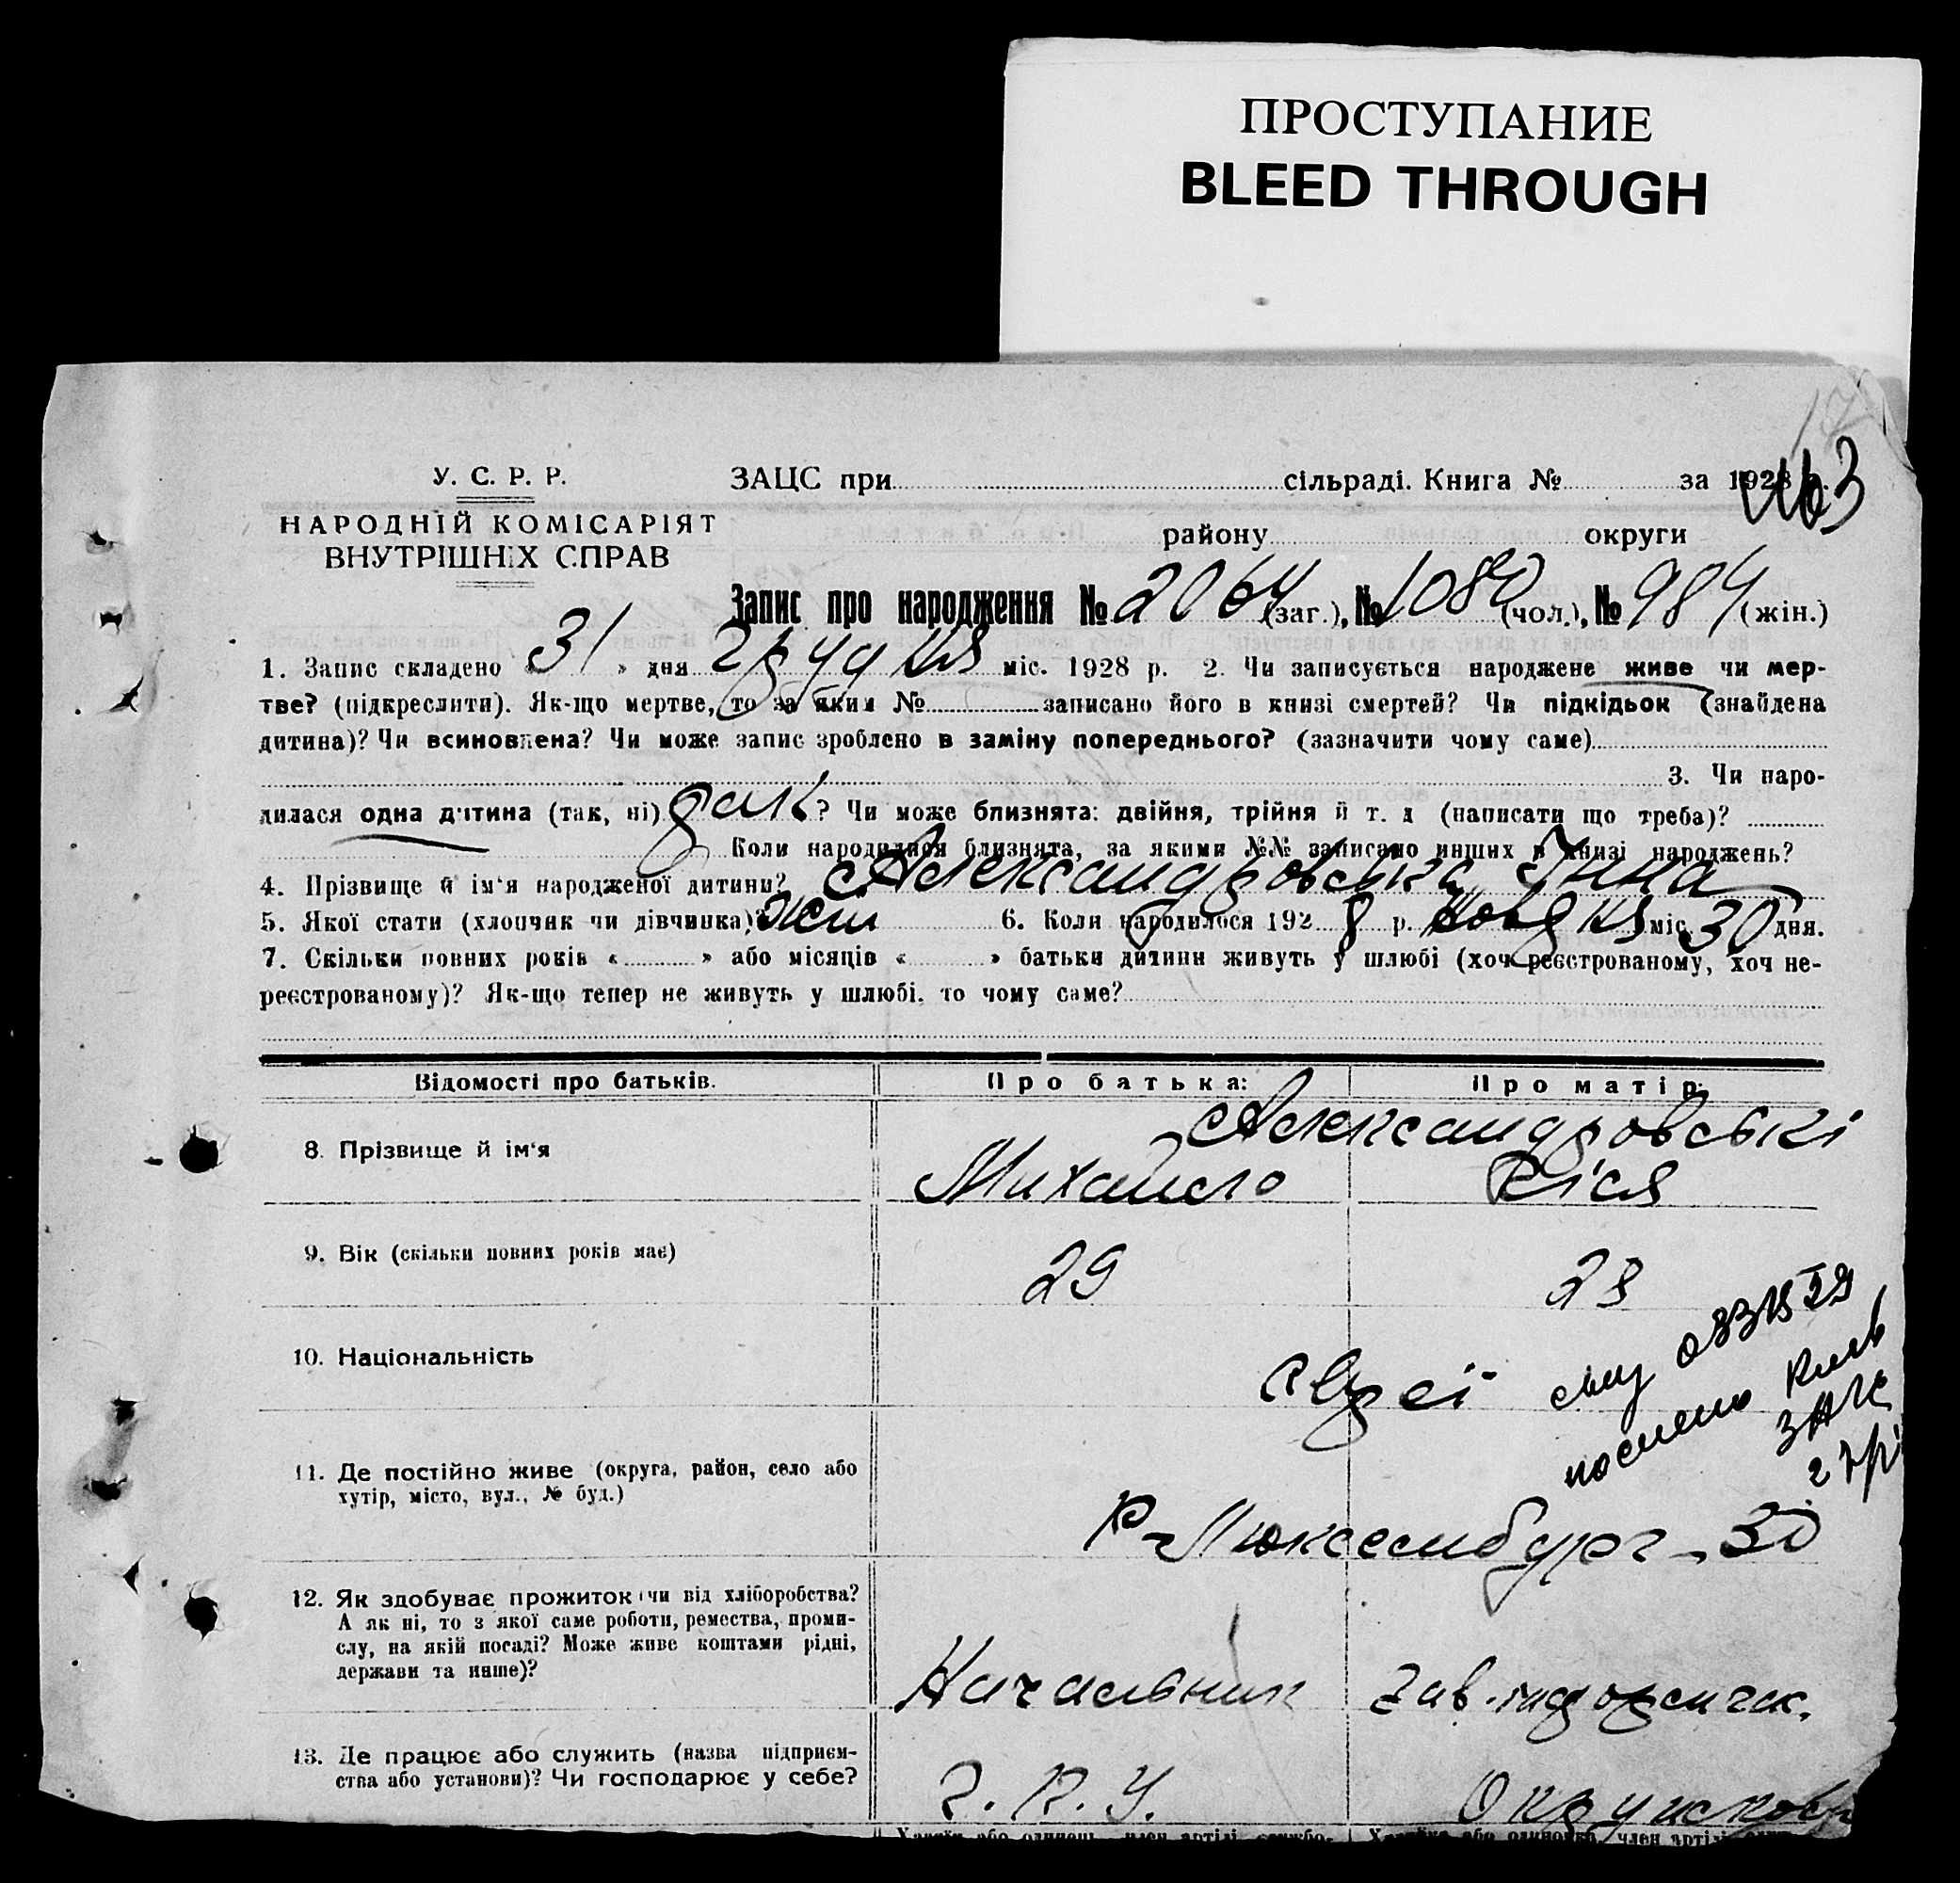 ПРОСТУПАНИЕ
BLEED THROUGH
463
У. С. Р. Р.
НАРОДНІЙ КОМІСАРІЯТ
ВНУТРІШНІХ СПРАВ
ЗАЦС при сільраді. Книга № за 1928 р.
району округи
Запис про народження № 2064 (заг.), № 1080 (чол.), № 984 (жін.)
1. Запис складено « 31 » дня грудня міс. 1928 р. 2. Чи записується народжене живе чи мер-
тве? (підкреслити). Як-що мертве, то за яким № записано його в книзі смертей? Чи підкідьок (знайдена
дитина)? Чи всиновлена? Чи може запис зроблено в заміну попереднього? (зазначити чому саме)
3. Чи наро-
дилася одна дитина (так, ні) ? Чи може близнята: двійня, трійня й т. д (написати що треба)?
Коли народилися близнята, за якими №№ записано инших в книзі народжень?
4. Прізвище й ім'я народженої дитини? Александровська Інна
5. Якої стати (хлопчик чи дівчинка)? жін 6. Коли народилося 1928 р. жовдня міс. 30 дня.
7. Скільки повних років « » або місяців « » батьки дитини живуть у шлюбі (хоч реєстрованому, хоч не-
реєстрованому)? Як-що тепер не живуть у шлюбі, то чому саме?
Відомості про батьків. Про батька: Про матір:
8. Прізвище й ім'я Александровські
Михайло Кіся
9. Вік (скільки повних років має) 29 28
10. Національність євреї
11. Де постійно живе (округа, район, село або
хутір, місто, вул., № буд.)
Р-Люксембург - 30
12. Як здобуває прожиток (чи від хліборобства?
А як ні, то з якої саме роботи, ремества, проми-
слу, на якій посаді? Може живе коштами рідні,
держави та инше)?
Начальник Зав.
13. Де працює або служить (назва підприєм-
ства або установи)? Чи господарює у себе?
Г. П. У.
Хазяїн або одинець, член артілі, службо- Хазяйка або одиночка, член артілі